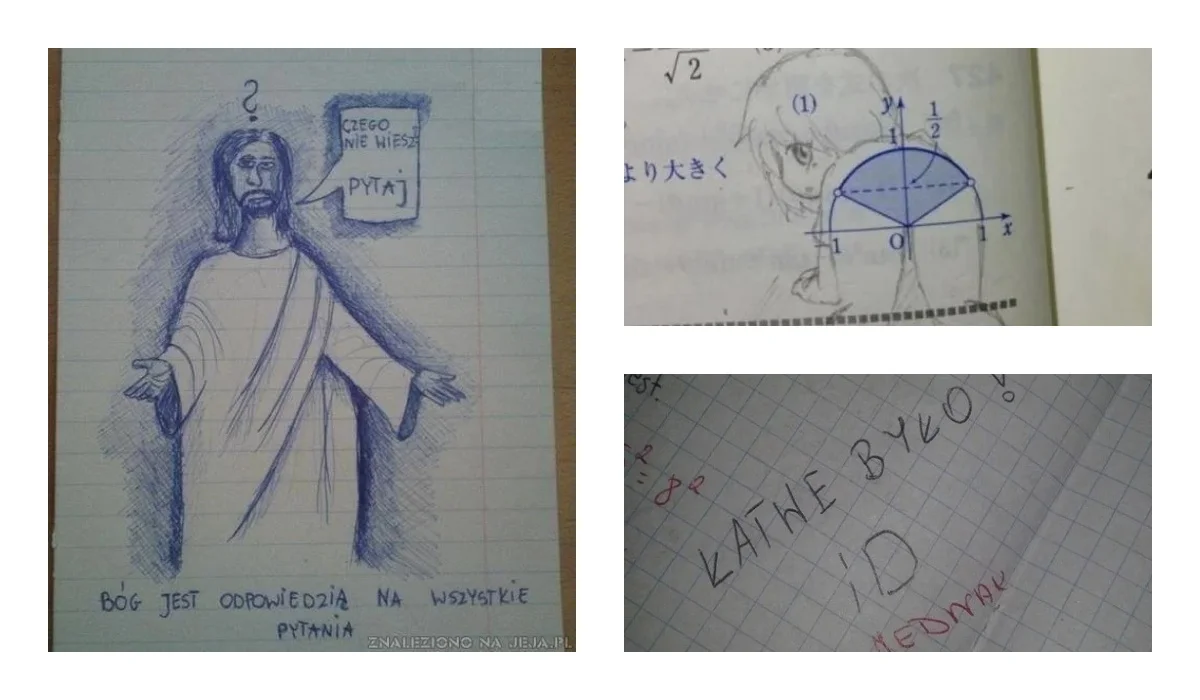 ?
CZEGO
NIE WIESZ
PYTAJ
BÓG JEST ODPOWIEDZIĄ NA WSZYSTKIE
PYTANIA
ZNALEZIONO NA JEJA.PL
√2
(1)
y
1
1/2
より大きく
1 O 1 x
2
= 8
ŁATWE BYŁO!
;D